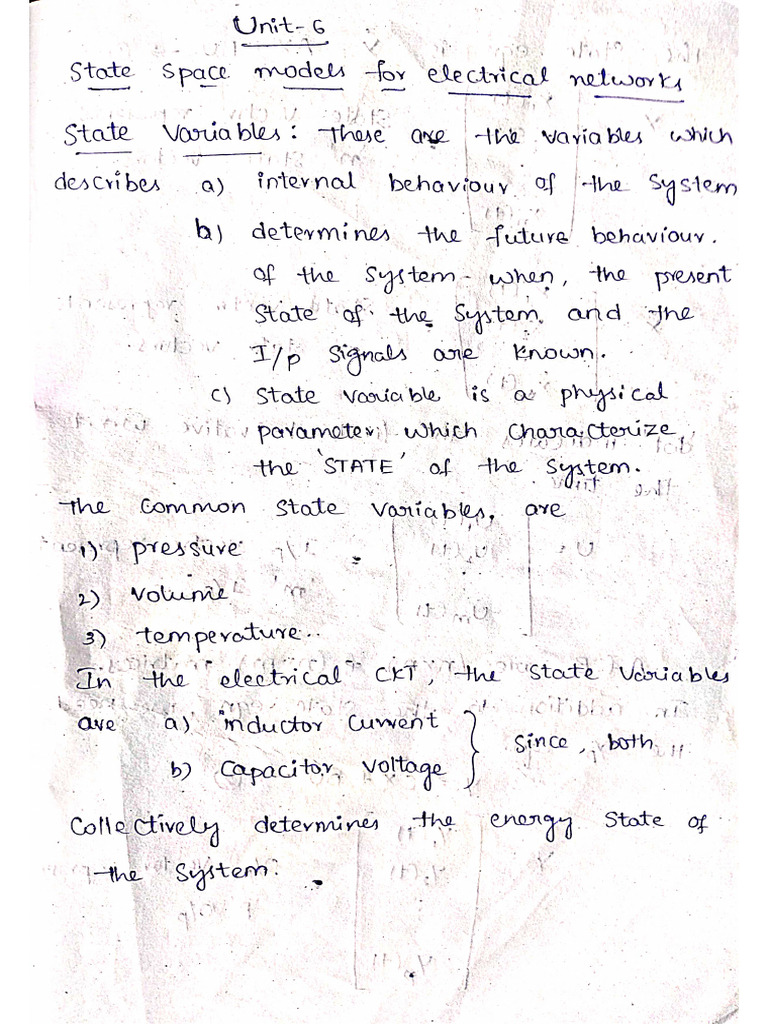 Unit-6
State Space models for electrical networks
State Variables: These are the variables which
describes a) internal behaviour of the System
b) determines the future behaviour.
of the System when, the present
State of the System and the
I/p Signals are known.
c) State variable is a physical
parameter which characterize
the 'STATE' of the System.
The common State variables, are
1) pressure
2) volume
3) temperature..
In the electrical CKT, the State variables
are a) inductor current
b) Capacitor voltage } Since, both
Collectively determines the energy State of
the System.